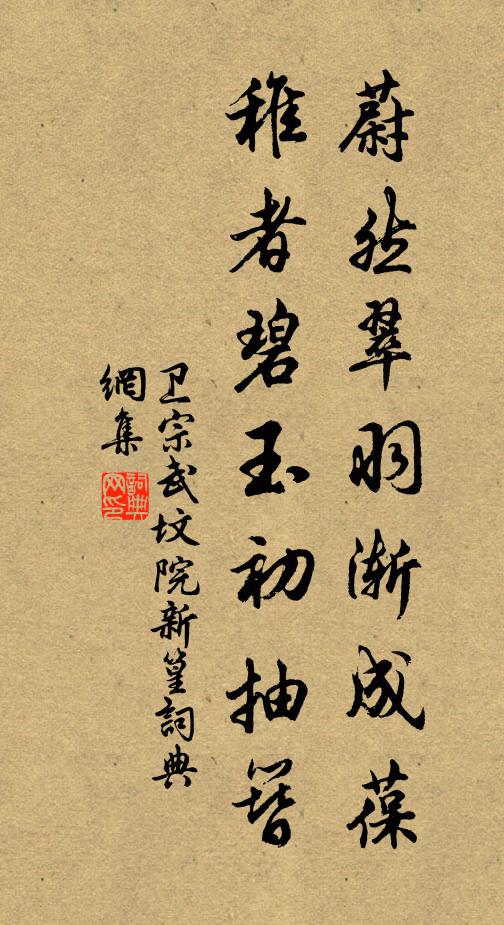 蔚然翠羽渐成葆
稚者碧玉初抽簪
卫宗武坟院新篁詞典
網集
詞典网印